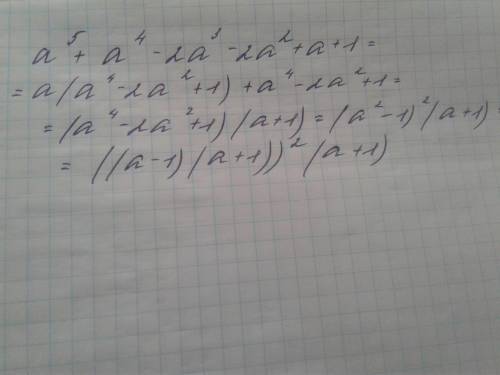 a⁵ + a⁴ - 2a³ - 2a² + a + 1 =
= a(a⁴ - 2a² + 1) + a⁴ - 2a² + 1 =
= (a⁴ - 2a² + 1)(a + 1) = (a² - 1)²(a + 1) =
= ((a - 1)(a + 1))²(a + 1)